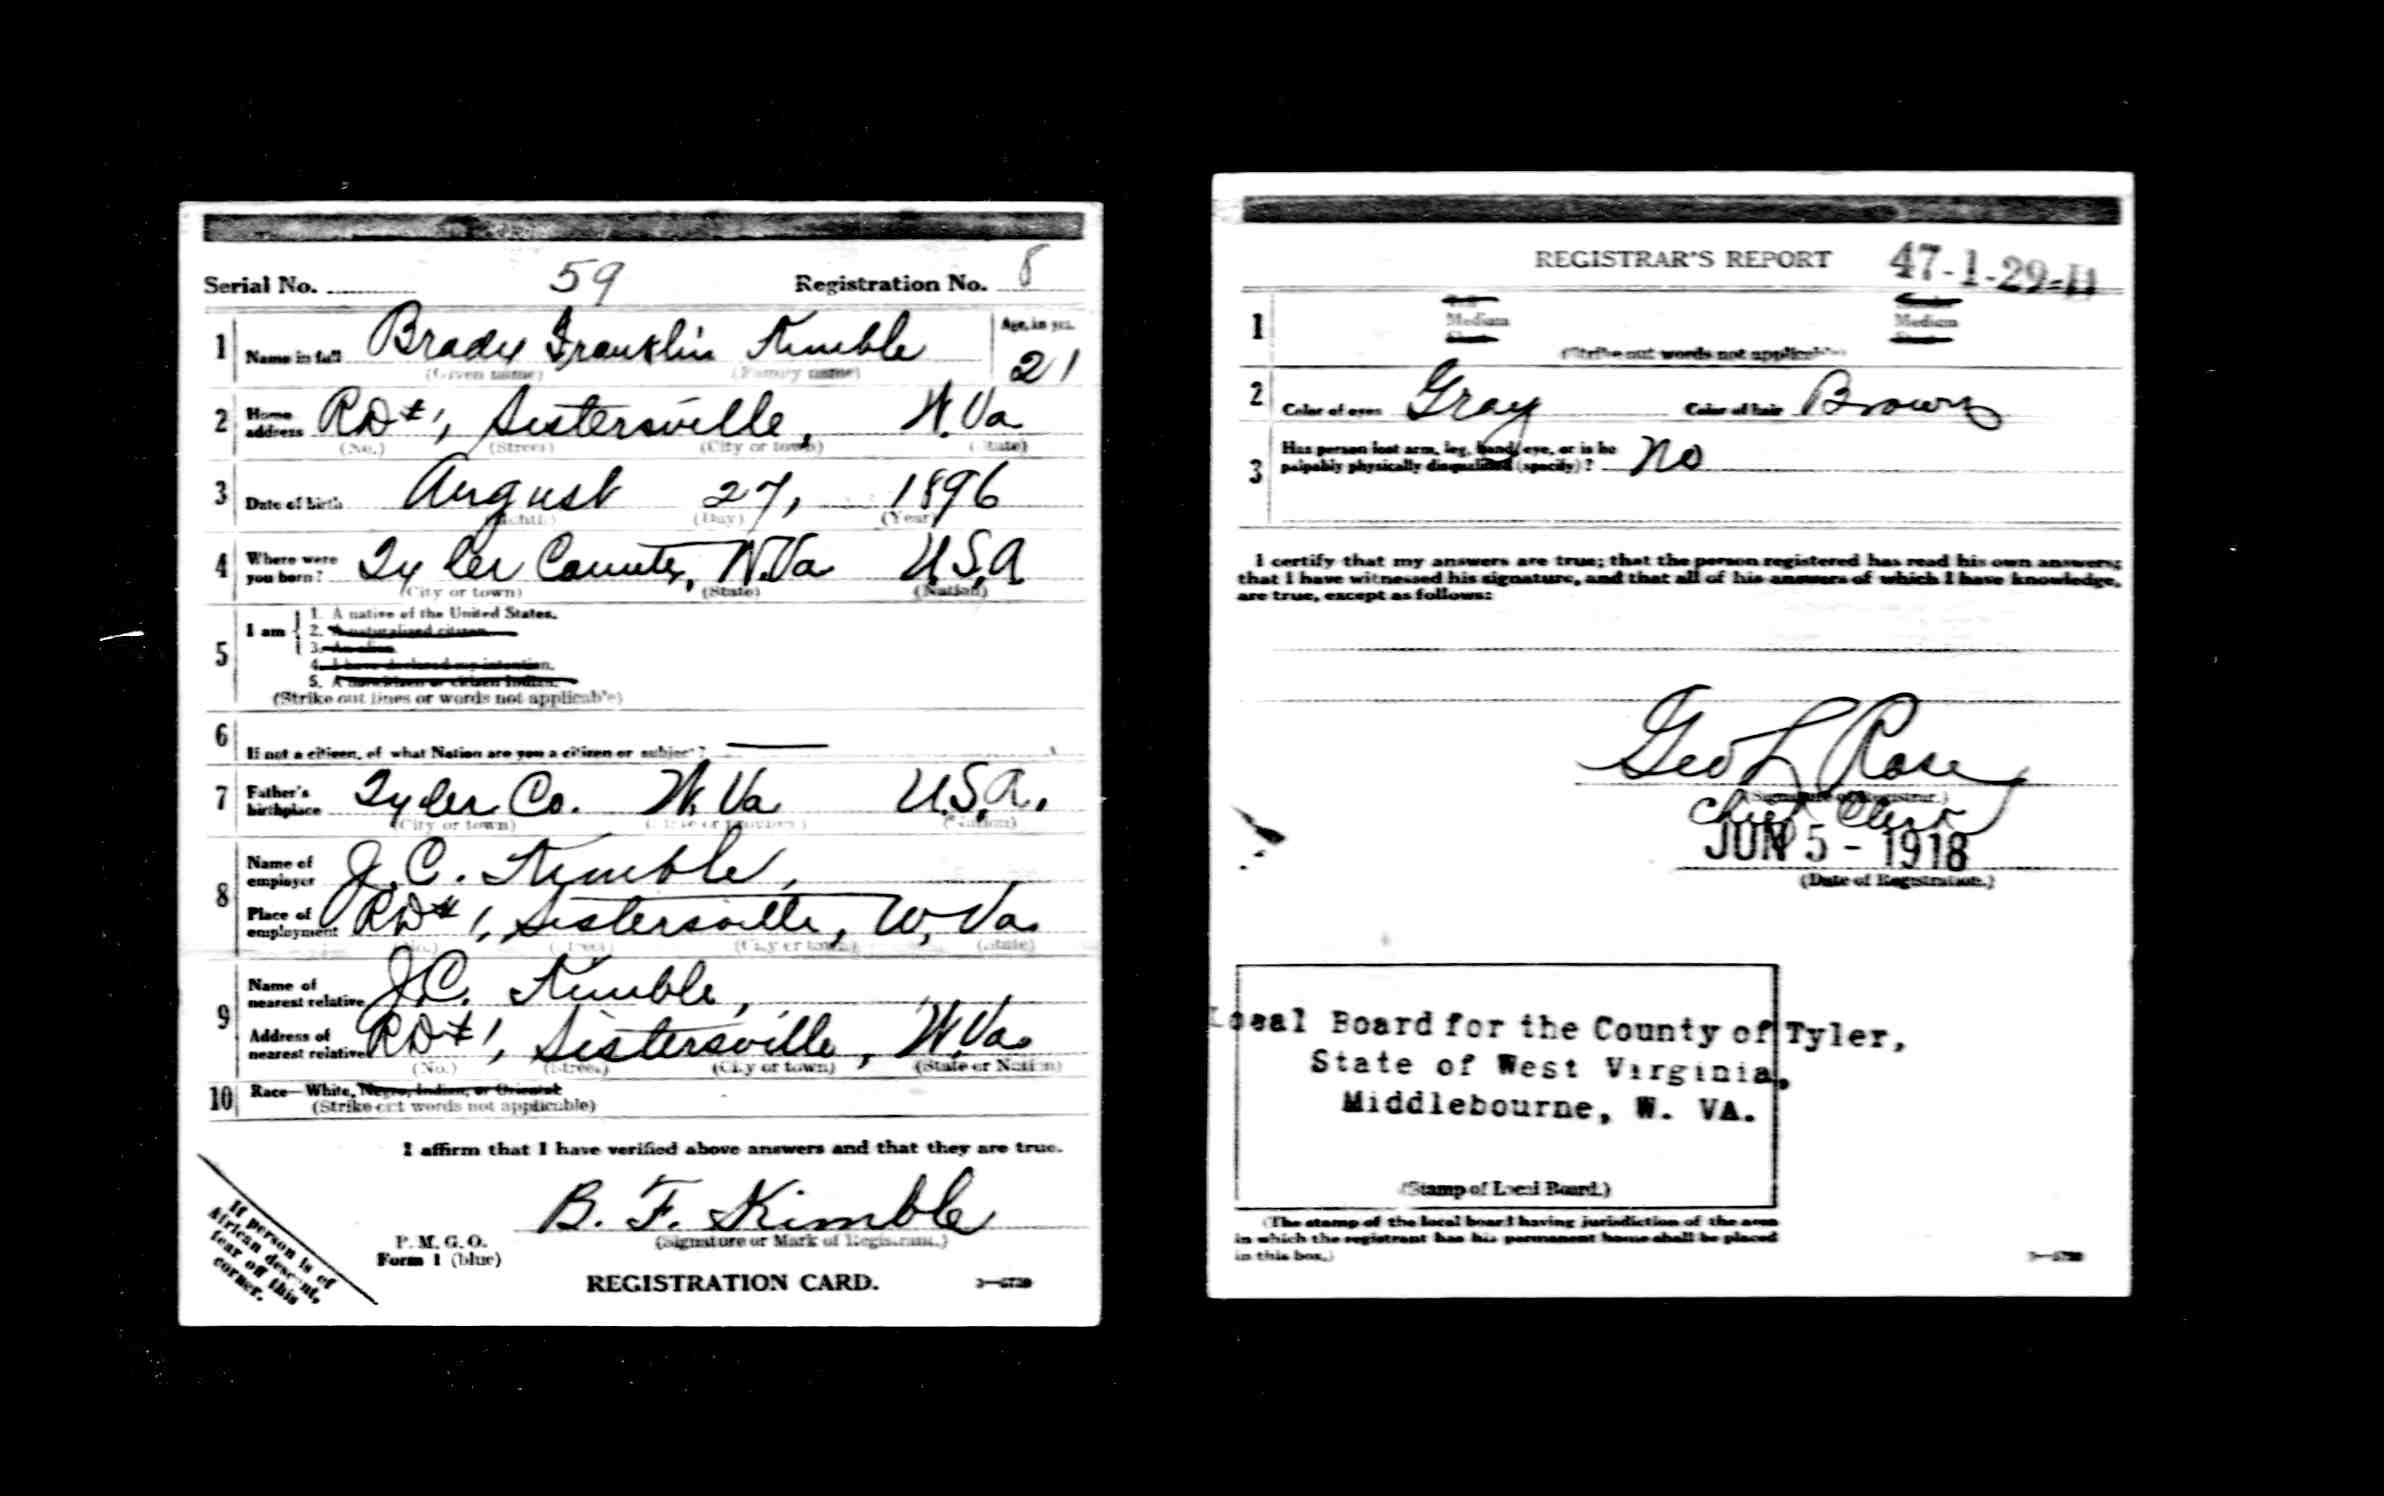 Serial No. 59 Registration No. 8
1 Name in full Brady Franklin Kimble Age, in yrs. 21
(Given name) (Family name)
2 Home address RD #1, Sistersville, W. Va
(No.) (Street) (City or town) (State)
3 Date of birth August 27, 1896
(Month) (Day) (Year)
4 Where were you born? Tyler County, W. Va U.S.A
(City or town) (State) (Nation)
5 I am 1. A native of the United States.
2. A naturalized citizen.
3. An alien.
4. I have declared my intention.
5. A
(Strike out lines or words not applicable)
6 If not a citizen, of what Nation are you a citizen or subject?
7 Father's birthplace Tyler Co. W. Va U.S.A.
(City or town) (State or province) (Nation)
8 Name of employer J. C. Kimble,
Place of employment RD #1, Sistersville, W. Va.
(No.) (Street) (City or town) (State)
9 Name of nearest relative J.C. Kimble,
Address of nearest relative RD #1, Sistersville, W. Va.
(No.) (Street) (City or town) (State or Nation)
10 Race—White, Negro, Indian, or Oriental
(Strike out words not applicable)
I affirm that I have verified above answers and that they are true.
B. F. Kimble
(Signature or Mark of Registrant.)
P. M. G. O.
Form 1 (blue)
REGISTRATION CARD.
If person is of
African descent,
tear off this
corner.
REGISTRAR'S REPORT 47-1-29-
1 Medium Medium
(Strike out words not applicable)
2 Color of eyes Gray Color of hair Brown
3 Has person lost arm, leg, hand, eye, or is he
palpably physically disqualified (specify)? No
I certify that my answers are true; that the person registered has read his own answers;
that I have witnessed his signature, and that all of his answers of which I have knowledge,
are true, except as follows:
Geo L Rose
(Signature of Registrar.)
Chief Clerk
JUN 5 - 1918
(Date of Registration.)
Local Board for the County of Tyler,
State of West Virginia,
Middlebourne, W. VA.
(Stamp of Local Board.)
(The stamp of the local board having jurisdiction of the area
in which the registrant has his permanent home shall be placed
in this box.)